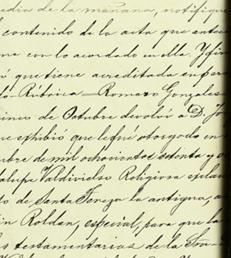 edio de la mañana, notifiqu
contenido de la acta que ante
me con lo acordado en ella. Y fir
ó que tiene acreditada en
Rúbrica — Romero Gonzales
de Octubre devolví a D. Jo
exhibió que le fué otorgado en
ubre de mil ochocientos setenta y o
alupe Valdivielso Religiosa
lo de Santa Teresa la antigua, a
in Roldan, especial, para que la
s testamentarias de la